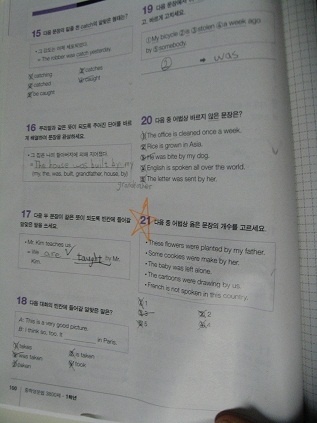 15 다음 문장의 밑줄 친 catch의 알맞은 형태는?
= The robber was catch yesterday.
① catching
② catches
③ catched
④ caught
⑤ be caught
16 우리말과 같은 뜻이 되도록 주어진 단어를 바르
게 배열하여 문장을 완성하시오.
The house was built by my
(my, the, was, built, grandfather, house, by)
grandfather
17 다음 두 문장이 같은 뜻이 되도록 빈칸에 들어갈
알맞은 말을 쓰시오.
Mr. Kim teaches us.
= We are taught by Mr.
Kim.
18 다음 대화의 빈칸에 알맞은 말은?
A: This is a very good picture.
B: I think so, too. It in Paris.
① takes
② is taken
③ was taken
④ took
⑤ taken
19
고, 바르게 고치시오.
①My bicycle ②is ③stolen ④a week ago
by ⑤somebody.
② ➡ was
20 다음 중 어법상 바르지 않은 문장은?
① The office is cleaned once a week.
② Rice is grown in Asia.
③ He was bite by my dog.
④ English is spoken all over the world.
⑤ The letter was sent by her.
21 다음 중 어법상 옳은 문장의 개수를 고르세요.
• These flowers were planted by my father.
• Some cookies were make by her.
• The baby was left alone.
• The cartoons were drawing by us.
• French is not spoken in this country.
① 1
② 2
③ 3
④ 4
⑤ 5